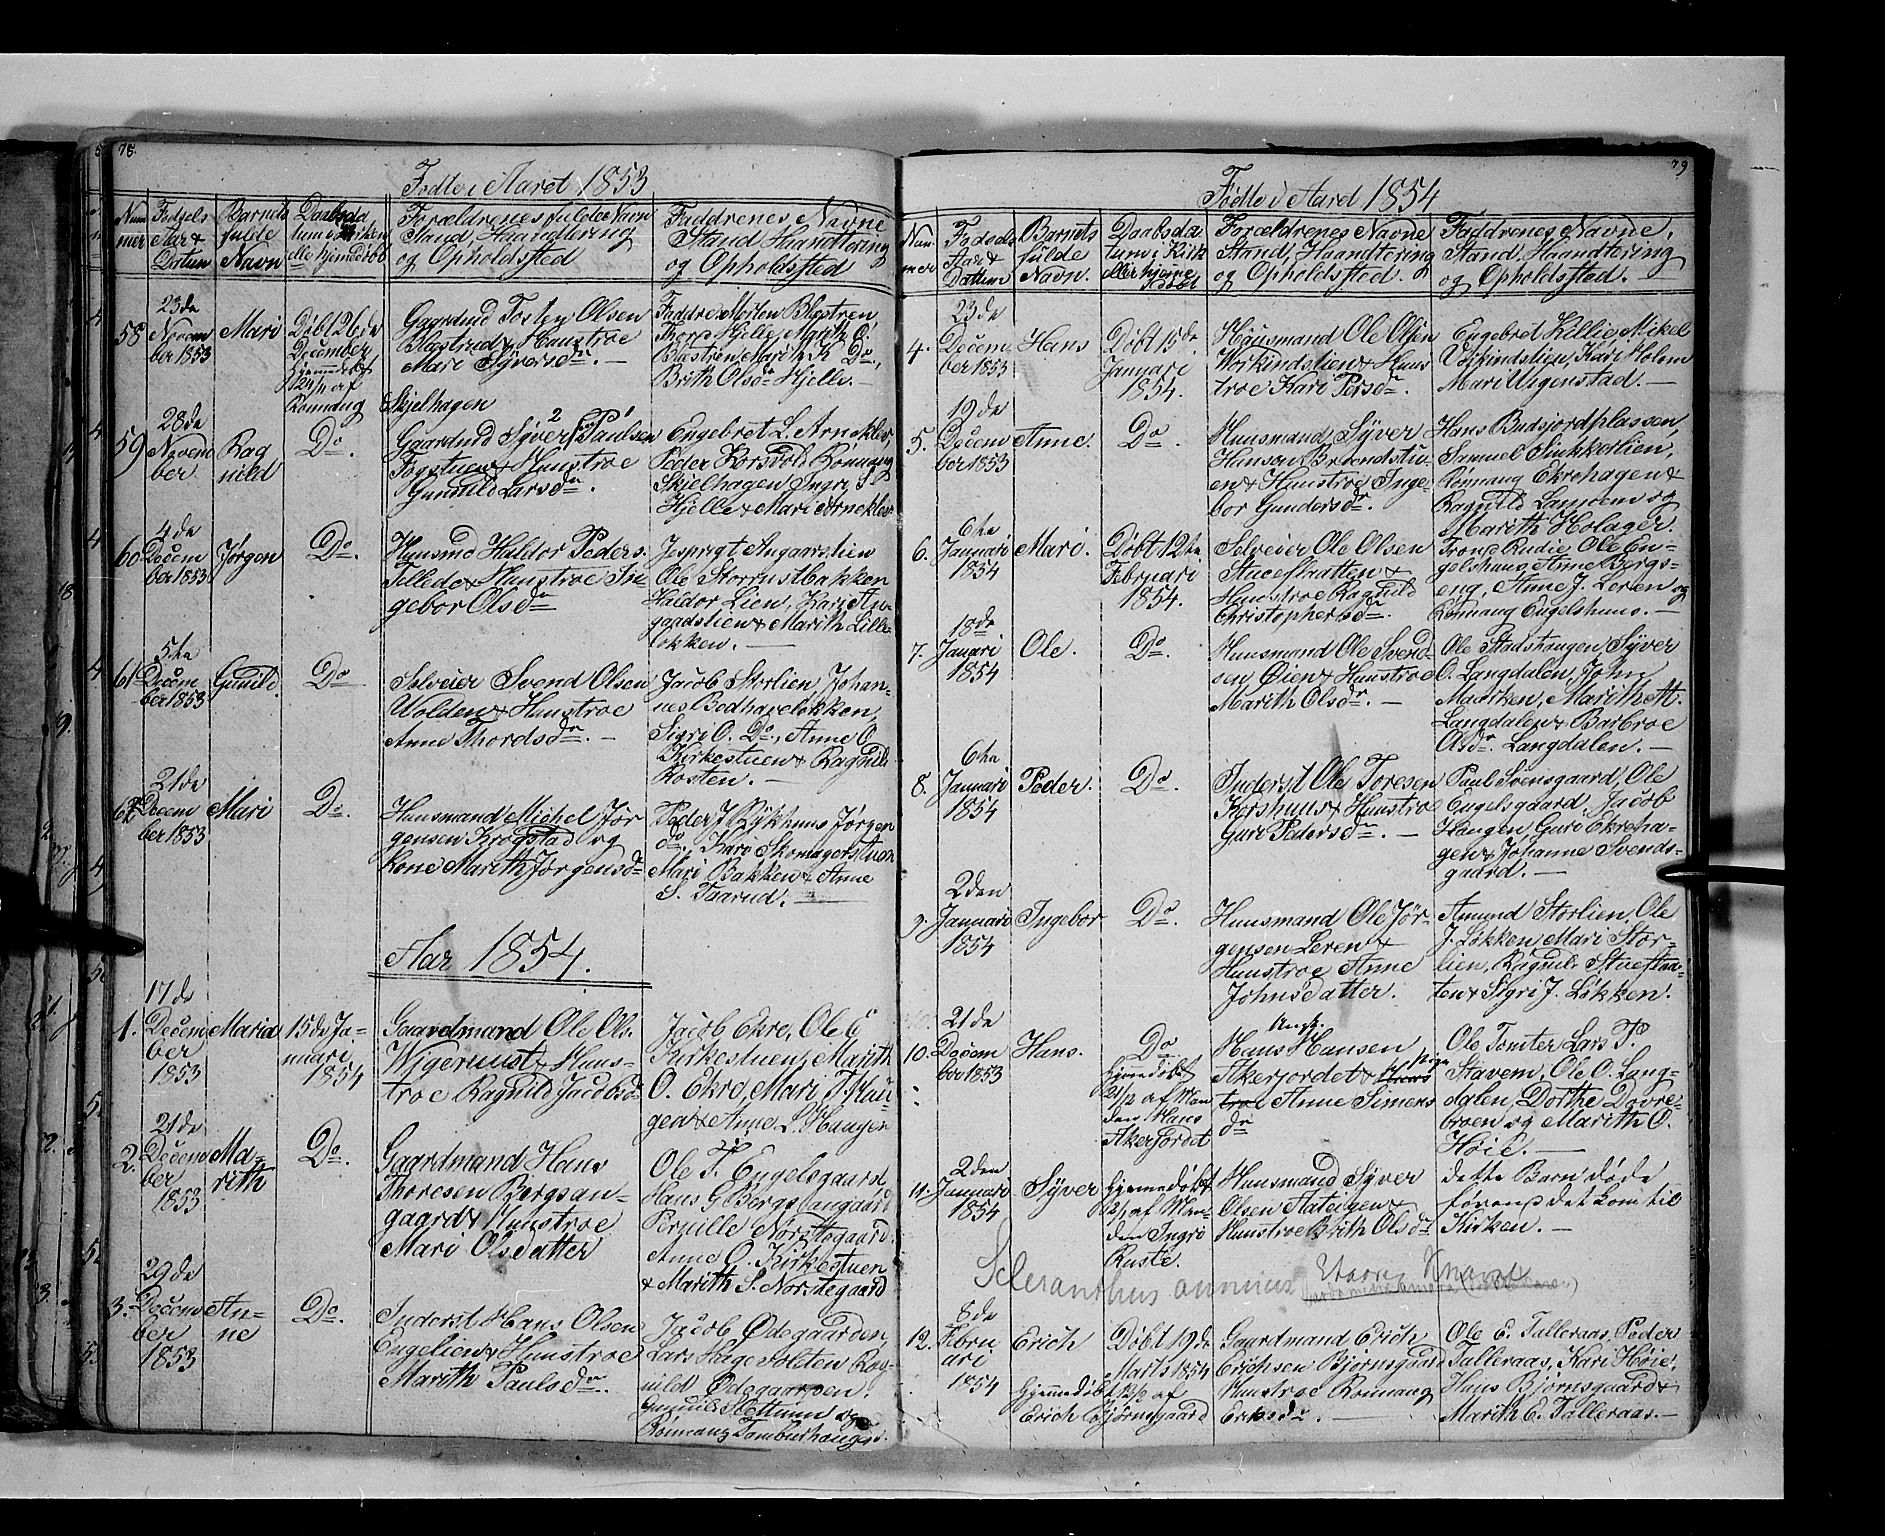 78.
Fødte i Aaret 1853
Num
mer
Fødsels
Aar &
Datum
Barnets
fulde
Navn
Daabsda
tum i Kirken
elle hjemedøbt
Forældrenes fulde Navn
Stand, Haandtering
og Opholdssted
Faddrenes Navne
Stand Haandtering
og Opholdssted
58
23de
Novem
ber 1853
Mari
Døbt 26de
December
hjemmedøbt
af
Rønnaug
Gaardmd Tosten Olsen
Blæstrud & Hustroe
Mari Syversdr. —
Faddre Morten Blæstren
Thord Hjelle, Marith O.
Blæstren, Marith K. Do.,
Brith Olsdr Hjelle. —
59
28de
Novem
ber
Rag
nild
Do.
Skjelhagen
Gaardmd Syver Paulsen
& Hustroe
Gunild Larsdr.
Engebret L. Arneklev,
Peder Korsvold Rønnaug
Skjelhagen Ingri S.
Hjelle & Mari Arneklev
60
4de
Decem
ber 1853
Jørgen
Do.
Huusmd Haldor Peders.
& Hustroe In-
gebor Olsdr
Jesprigt Angaardslien
Ole Storrustbakken
Haldor Lien, Kari An-
gaardslien & Marith Lille
løkken. —
61
5te
Decem
ber 1853
Gunild.
Do
Selveier Svend Olsen
Wolden & Hustroe
Anne Thordsdr. —
Jacob Storlien, Johan-
nes Bodhaveløkken,
Sigri O. Do., Anne O.
Kirkestuen & Ragnild
Rosten. —
62
21de
Decem
ber 1853
Mari
Do
Huusmand Michel Jør
gensen Krogstad og
Kone Marith Jørgensdr
Peder J. Rykhuus Jørgen
do., Kari Skomagerstuen
Mari Bakken & Anne
S. Taarud. —
Aar 1854.
1.
17de
Decem
ber
1853
Maria
15de Ja-
nuari
1854
Gaardmand Ole Ols.
Wigerust & Hus-
troe Ragnild Jacobsdr
Jacob Ekre, Ole O.
Kirkestuen, Marith
O. Ekre, Mari T. Hau-
gen & Anne L. Haugen
2.
21de
Decem
ber
1853
Ma-
rith
Do.
Gaardmand Hans
Thoresen Bergsan-
gaard & Hustroe
Mari Olsdatter
Ole T. Engelsgaard
Hans G. Bergsangaard
Pernille Norstegaard
Anne O. Kirkestuen
& Marith S. Norstegaard
3.
29de
Decem
ber
1853
An-
ne
Do.
Inderst Hans Olsen
Engelien & Hustroe
Marith Paulsdr.
Jacob Ødegaarden
Lars Hagevolden Rag-
nild Ødegaarden,
Gunild Slettum og
Rønnaug Tamburhaugen.
79
Fødte i Aaret 1854
Num-
mer
Fødsels
Aar &
Dattum
Barnets
fulde
Navn.
Daabsda
tum i Kirk
eller hjeme
døbt
Forældrenes Navne
Stand, Haandtering
og Opholdssted.
Faddrenes Navne,
Stand. Haandtering
og Opholdssted.
4.
23de
Decem
ber 1853
Hans
Døbt 15de
Januari
1854.
Huusmand Ole Olsen
Workindslien & Hus
troe Kari Persdr.
Engebret Lillie, Mikel
Workindslien, Kari Holem
Mari Urgenstad. —
5.
19de
Decem
ber 1853
Anne.
Do.
Huusmand Syver
Hansen Brændstu-
en & Hustroe Inge-
bor Gundersdr.
Hans Budsjordplassen
Samuel Sinkkerlien,
Rønnaug Ekrehagen &
Ragnild Lannem og
Marith Holager.
6.
6te
Januari
1854
Mari.
Døbt 12te
Februari
1854.
Selveier Ole Olsen
Stueflaatten &
Hustroe Ragnild
Christophersdr.
Trond Rudie, Ole En-
gelshuus, Anne Bergs-
eng, Anne J. Leren og
Rønnaug Engelshuus. —
7.
18de
Januari
1854
Ole.
Do.
Huusmand Ole Svend-
sen Øien & Hustroe
Marith Olsdr. —
Ole Stadshaugen, Syver
O. Langdalen, John
Maurken, Marith A.
Langdalen & Barbroe
Olsdr. Langdalen. —
8.
6te
Januari
1854
Peder.
Do.
Inderst Ole Toresen
Korshuus & Hustroe
Guri Pedersdr. —
Paul Svensgaard, Ole
Engelsgaard, Jacob
Haugen Guri Ekreha-
gen & Johanne Svends-
gaard. —
9.
2den
Januari
1854
Ingebor
Do.
Huusmand Ole Jør-
gensen Leren &
Hustroe Anne
Johnsdatter.
Amund Storlien, Ole
J. Løkken, Mari Stor-
lien, Ragnild Stueflaa-
ten & Sigri J. Løkken.
10.
21de
Decem
ber 1853
Hans.
Do
hjemedøbt
af Man
den Hans
Akerjordet
Ungk.
Hans Hansen
Akerjordet & Pige
troe Anne Simens
dr
Ole Tomter Lars P.
Stavem, Ole O. Lang-
dalen, Dorthe Dovre-
broen og Marith O.
Høie. —
11.
2den
Januari
1854
Syver
hjemedøbt
af Man-
den Ingri
Ruste.
Huusmand Syver
Olsen Aateigen &
Hustroe Brith Olsdr
dette Barn døde
førend det kom til
Kirken. —
Scleranthus annuus Knavel
12.
8de
Febru
ari
1854
Erich
Døbt 19de
Marts 1854
hjemmedøbt af
Erich Bjørnsgaard
Gaardmand Erich
Erichsen Bjørnsgaard
Hustroe Rønnaug
Eriksdr. —
Ole E. Talleraas, Peder
Talleraas, Kari Høie,
Hans Bjørnsgaard &
Marith E. Talleraas. —